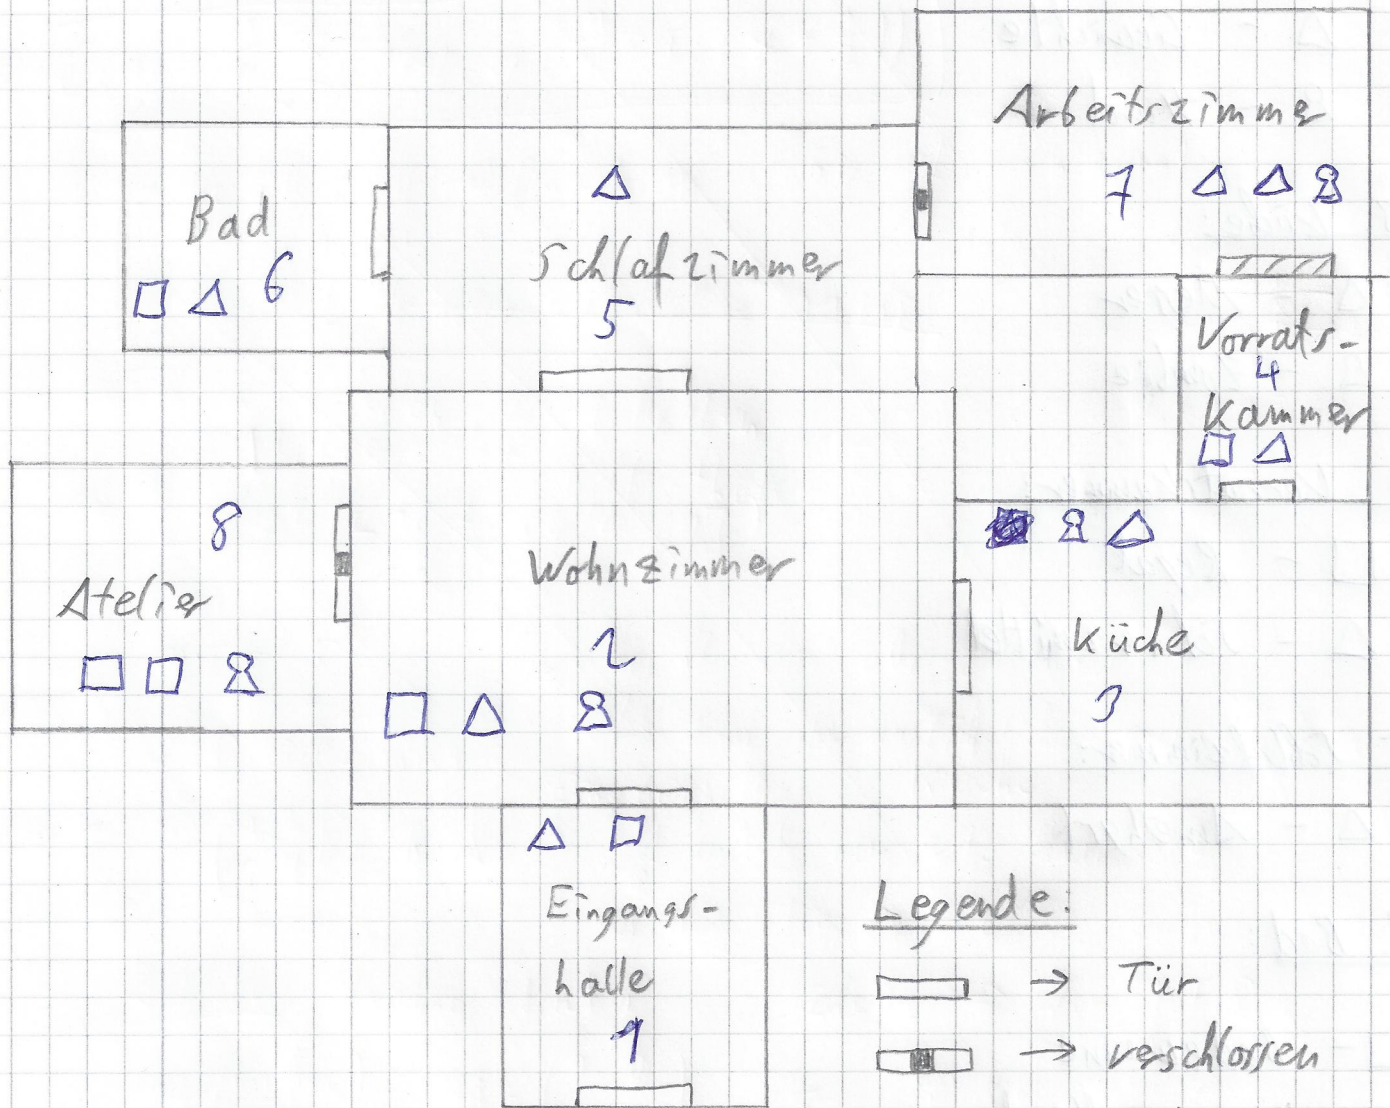 Arbeitszimmer
7
Bad
6
Schlafzimmer
5
Vorrats-
4
Kammer
8
Atelier
Wohnzimmer
2
Küche
3
Eingangs-
halle
1
Legende:
→ Tür
→ verschlossen